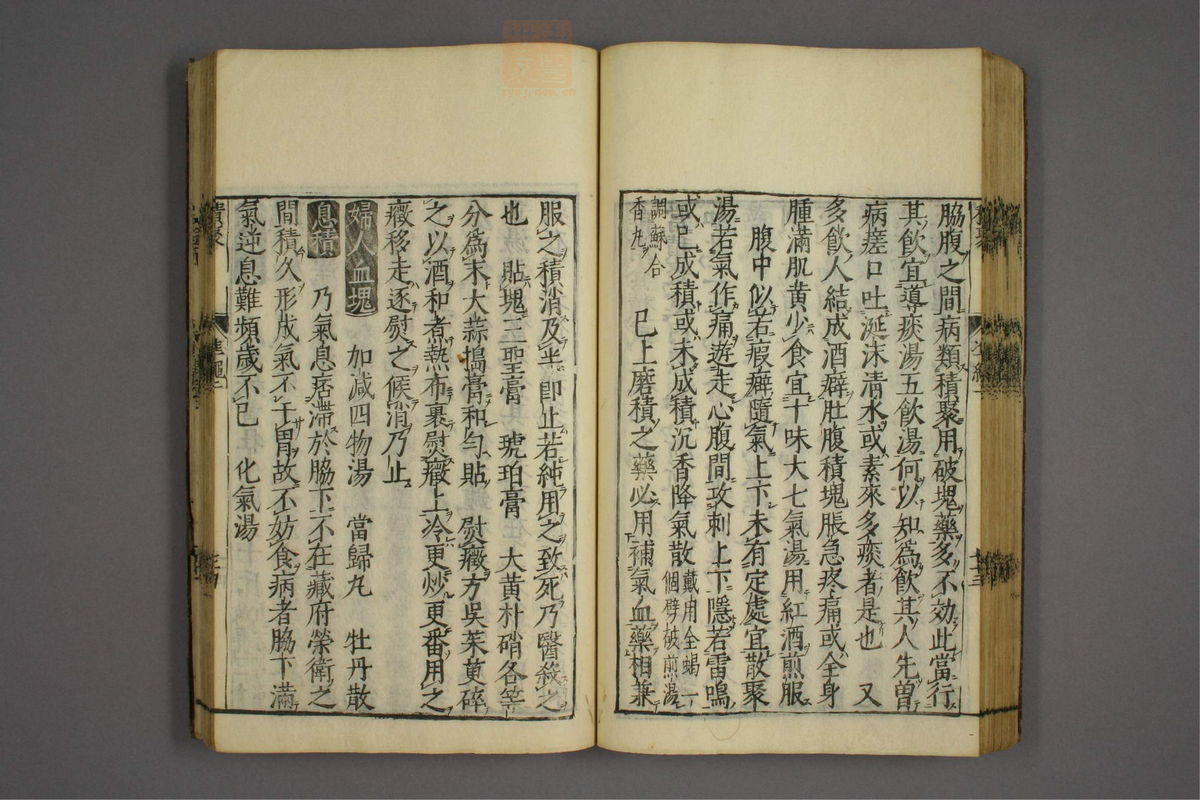 脇腹之間病類積聚用破塊藥多不効此當行
其飲宜導痰湯五飲湯何以知為飲其人先曾
病瘥口吐涎沫清水或素來多痰者是也　又
多飲人結成酒癖肚腹積塊脹急疼痛或全身
腫滿肌黄少食宜十味大七氣湯用紅酒煎服
腹中似若瘕癖隨氣上下未有定處宜散聚
湯若氣作痛遊走心腹間攻刺上下隱若雷鳴
或已成積或未成積沉香降氣散戴用全蝎一個劈破煎湯
調蘇合香丸　已上磨積之藥必用補氣血藥相兼
服之積消及半即止若純用之致死乃醫殺之
也　貼塊三聖膏　琥珀膏　大黄朴硝各等
分為末大蒜搗膏和勻貼　熨癥方吳茱萸碎
之以酒和煮熱布裹熨癥上冷更炒更番用之
癥移走逐熨之候消乃止
婦人血塊　加減四物湯　當歸丸　牡丹散
息積　乃氣息痞滯於脇下不在藏府榮衛之
間積久形成氣不干胃故不妨食病者脇下滿
氣逆息難頻歲不已　化氣湯